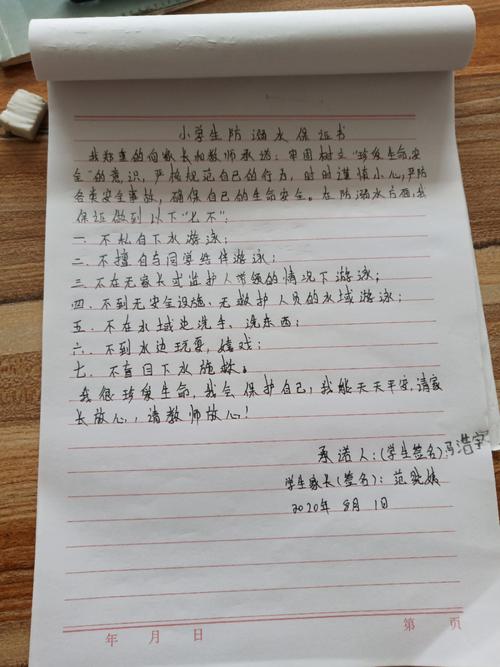 小学生防溺水保证书
我郑重的向家长和教师承诺：牢固树立“珍爱生命，安
全”的意识，严格规范自己的行为，时时谨慎小心，严防
各类安全事故，确保自己的生命安全。在防溺水方面，我
保证做到以下“七不”：
一. 不私自下水游泳；
二. 不擅自与同学结伴游泳；
三. 不在无家长或监护人带领的情况下游泳；
四. 不到无安全设施、无救护人员的水域游泳；
五. 不在水域边洗手、洗东西；
六. 不到水边玩耍，嬉戏；
七. 不盲目下水施救。
我很珍爱生命，我会保护自己，我能天天平安，请家
长放心，请教师放心！
承诺人：(学生签名)冯浩宇
学生家长(签名)：范
2020年 8月 1日
年 月 日 第 页